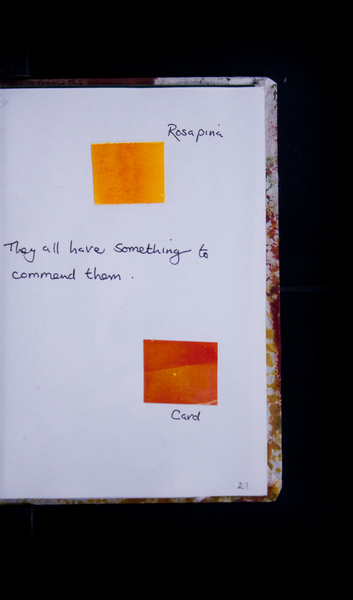 Rosapina
They all have something to
commend them.
Card
21